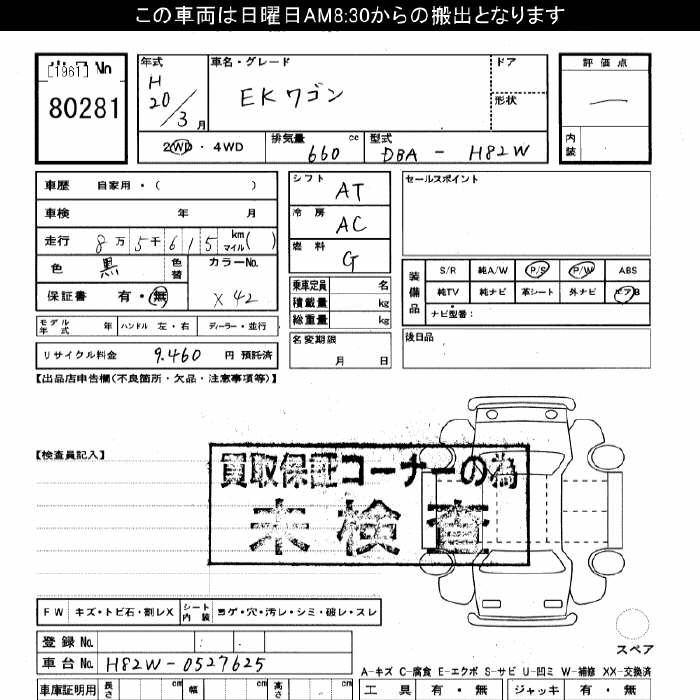 この車両は日曜日AM8:30からの搬出となります
[1961]
80281
年式
H
20/3月
車名・グレード
EKワゴン
ドア
形状
評価点
内装
2WD・4WD
排気量 660 cc
型式 DBA - H82W
車歴 自家用・( )
車検 年 月
走行 8万5千615 km マイル( )
色 黒
色替
カラーNo.
X42
保証書 有・無
シフト AT
冷房 AC
燃料 G
乗車定員 名
積載量 kg
総重量 kg
セールスポイント
装備品
S/R 純A/W P/S P/W ABS
純TV 純ナビ 革シート 外ナビ エアB
ナビ型番:
モデル年式 年 ハンドル 左・右 ディーラー・並行
名変期限 月 日
後日品
リサイクル料金 9.460 円 預託済
【出品店申告欄(不良箇所・欠品・注意事項等)】
【検査員記入】
買取保証コーナーの為
未検査
FW キズ・トビ石・割レX
シート内装 ヨゲ・穴・汚レ・シミ・破レ・スレ
スペア
登録No.
車台No. H82W-0527625
A-キズ C-腐食 E-エクボ S-サビ U-凹ミ W-補修 XX-交換済
車庫証明用 長さ cm 幅 cm 高さ cm
工具 有・無 ジャッキ 有・無